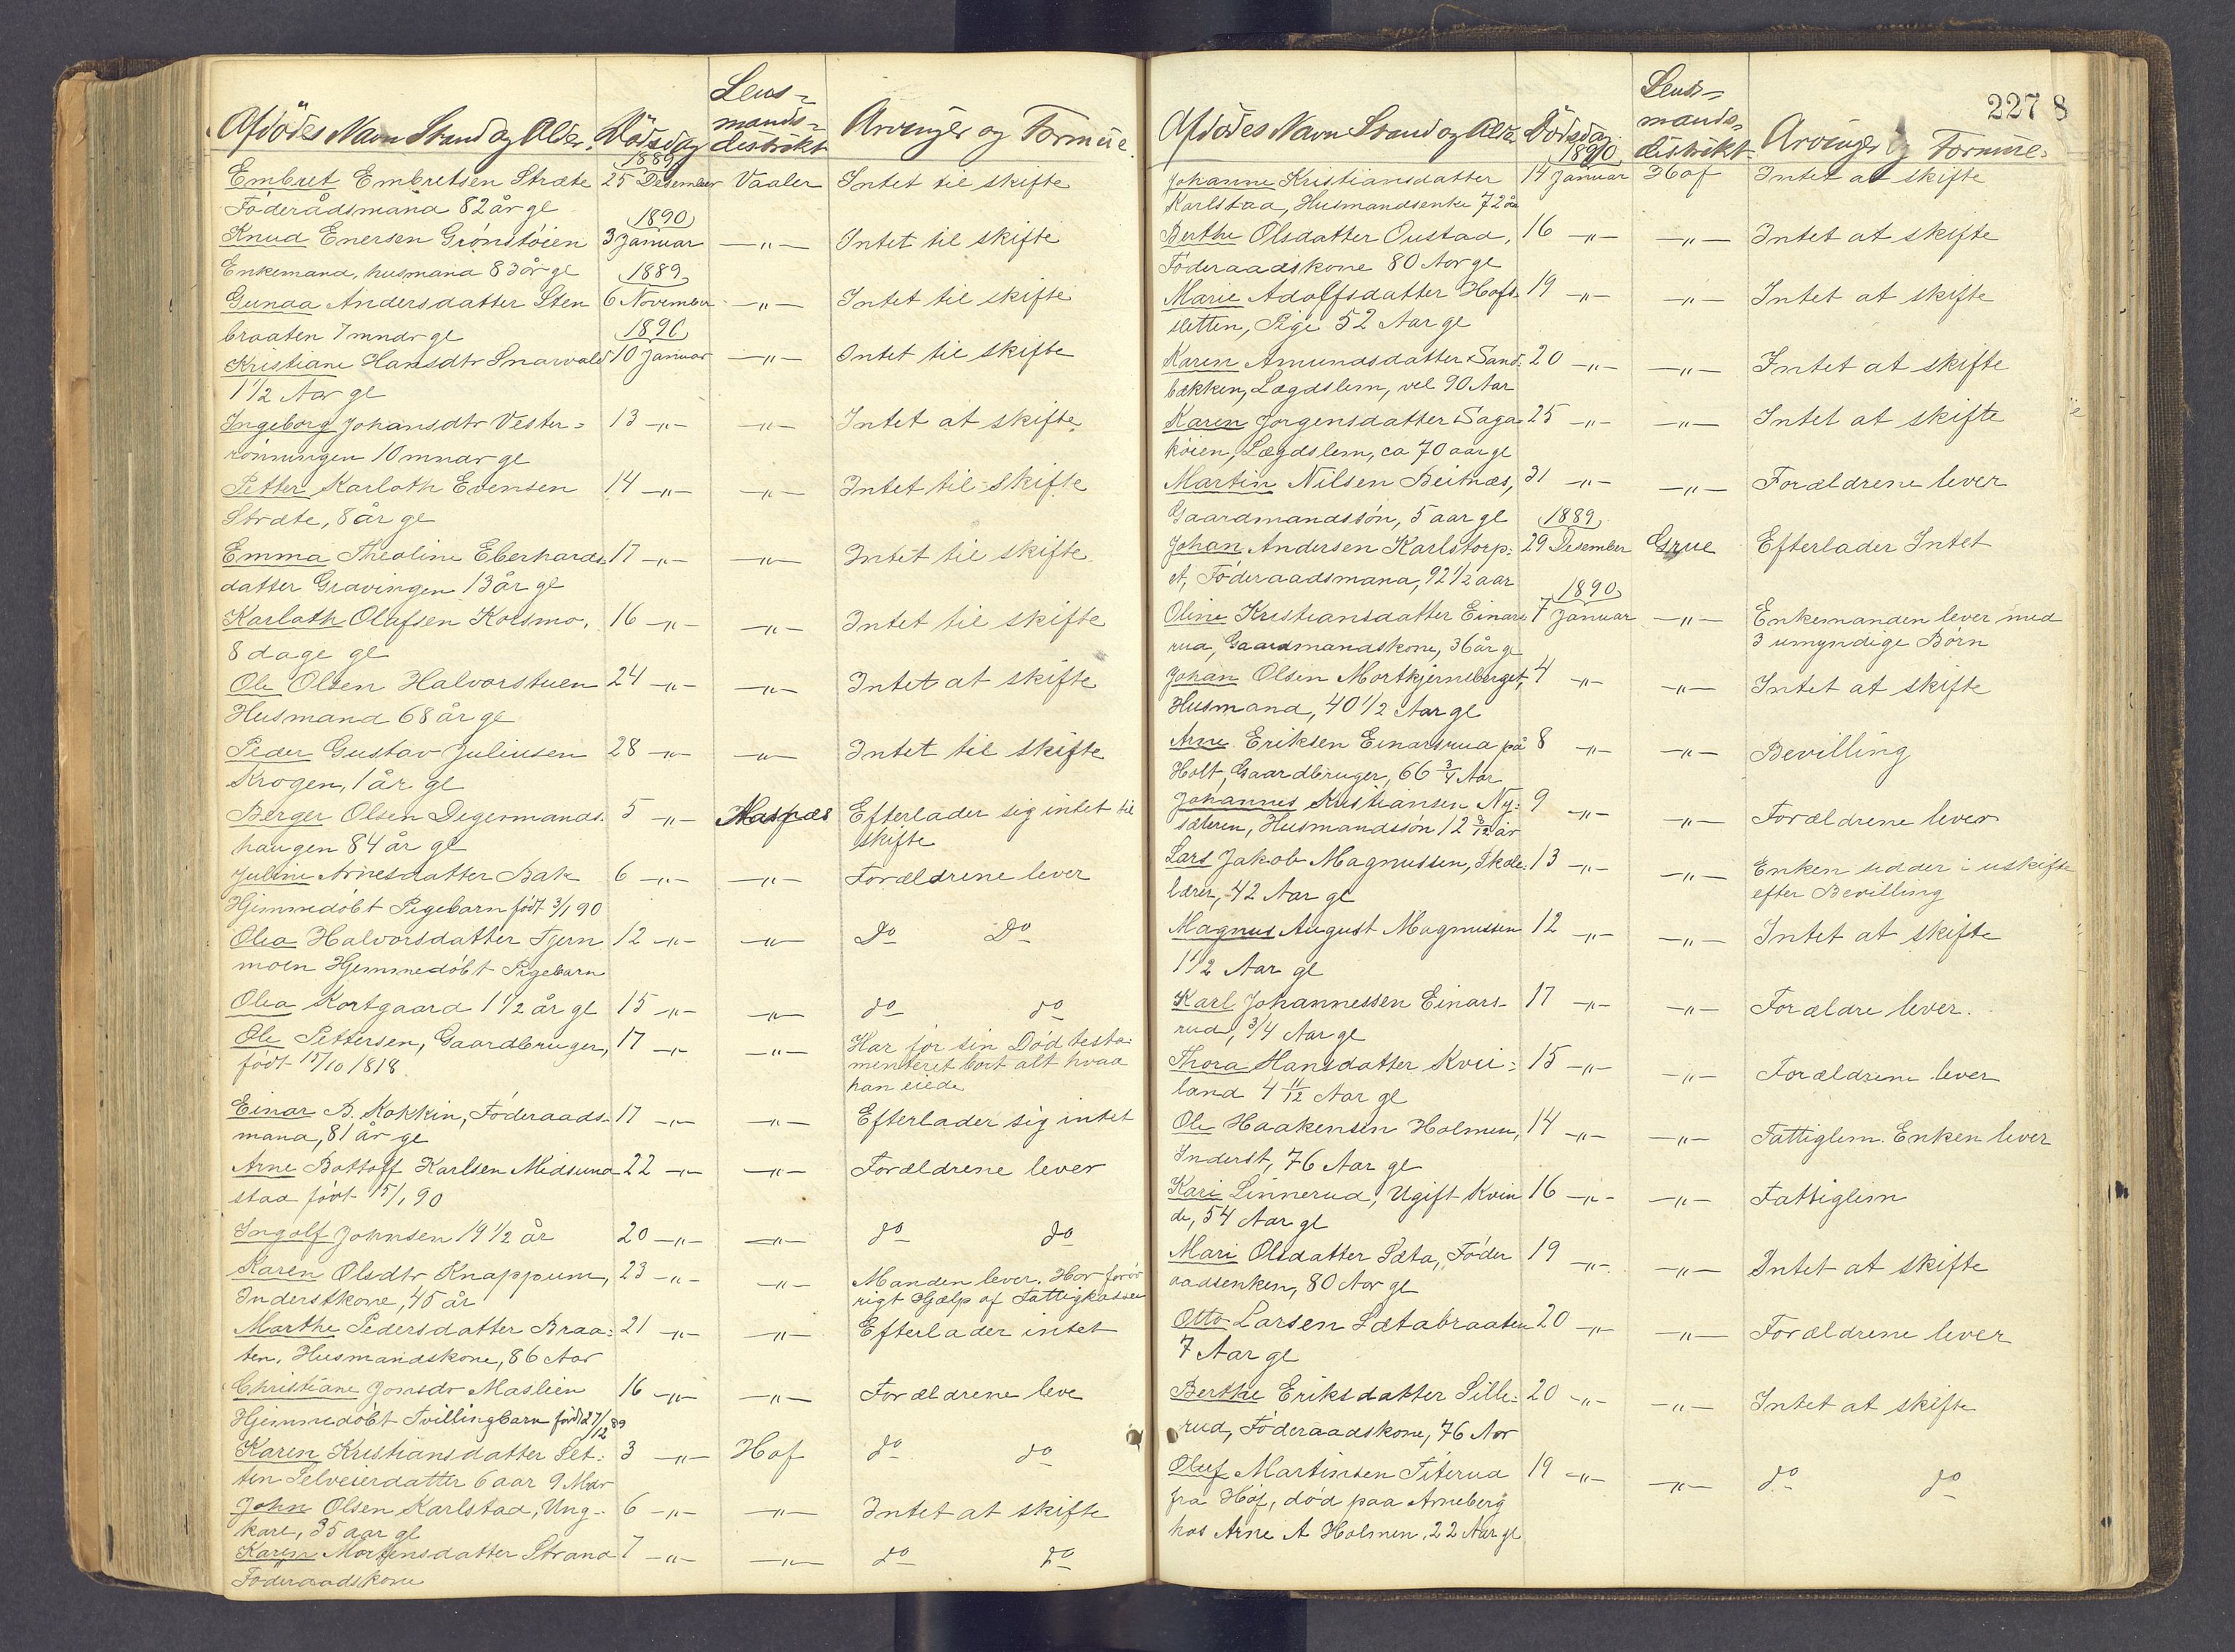 Afdödes Navn Stand og Alder. Dödsdag Lens-mands-distrikt Arvinger og Formue.
1889
Embret Embretsen Stræte 25 Desember Vaaler Intet til skifte
Föderådsmand 82 år gl
1890
Knud Enersen Grönstöien 3 Januar —"— Intet til skifte
Enkemand, husmand 83 år gl
1889
Gunda Andersdatter Sten 6 November —"— Intet til skifte
braaten 7 mndr gl
1890
Kristiane Hansdtr Snarvold 10 Januar —"— Intet til skifte
1 1/2 Aar gl
Ingeborg Johansdtr Vester= 13 —"— —"— Intet at skifte
rönningen 10 mndr gl
Petter Karloth Evensen 14 —"— —"— Intet til skifte
Stræte, 8 år gl
Emma Theoline Eberhards= 17 —"— —"— Intet til skifte
datter Gravingen 13 år gl
Karloth Olafsen Kosmo, 16 —"— —"— Intet til skifte
8 dage gl
Ole Olsen Halvorstuen 24 —"— —"— Intet at skifte
Husmand 68 år gl
Peder Gustav Juliusen 28 —"— —"— Intet til skifte
Krogen, 1 år gl
Berger Olsen Degermands= 5 —"— Aasnes Efterlader sig intet til
haugen 84 år gl skifte
Juline Arnesdatter Bak 6 —"— —"— Forældrene lever
Hjemmedöbt Pigebarn född 3/1 90
Olea Halvorsdatter Tjern 12 —"— —"— Do Do
moen Hjemmedöbt Pigebarn
Olea Kortgaard 1 1/2 år gl 15 —"— —"— do do
Ole Pettersen, Gaardbruger, 17 —"— —"— Har för sin Död testa=
födt 15/10 1818 menteret bort alt hvad
han eiede
Einar B. Kokkin, Föderaads= 17 —"— —"— Efterlader sig intet
mand, 81 år gl
Arne Bottolf Karlsen Midsund 22 —"— —"— Forældrene lever
stad födt 15/1 90
Ingolf Johnsen 19 1/2 år 20 —"— —"— do do
Karen Olsdtr Knappum, 23 —"— —"— Manden lever. Har forör
Inderstkone, 45 år rigt Hjælp af Fattigkassen
Marthe Pedersdatter Braa= 21 —"— —"— Efterlader intet
ten, Husmandskone, 86 Aar
Christiane Jonsdr Maslien 16 —"— —"— Forældrene leve
Hjemmedöbt Tvillingbarn född 27/12 89
Karen Kristiansdatter Set= 3 —"— Hof do do
ten Selveierdatter 6 aar 9 Mdr
John Olsen Karlstad, Ung= 6 —"— —"— Intet at skifte
karl, 35 aar gl
Karen Mortensdatter Strand 7 —"— —"— do do
Föderaadskone
227 8
Afdödes Navn Stand og Alder Dödsdag Lens=mands=distrikt Arvinger og Formue.
1890
Johanne Kristiansdatter 14 Januar Hof Intet at skifte
Karlstad, Husmandsenke 72 år
Berthe Olsdatter Oustad, 16 —"— —"— Intet at skifte
Föderaadskone 80 Aar gl
Marie Adolfsdatter Hofs= 19 —"— —"— Intet at skifte
sletten, Pige 52 Aar gl
Karen Amundsdatter Sand= 20 —"— —"— Intet at skifte
bækken, Lægdslem, vel 90 Aar
Karen Jorgensdatter Saga= 25 —"— —"— Intet at skifte
köien, Lægdslem, ca 70 aar gl
Martin Nilsen Beitnæs, 31 —"— —"— Forældrene lever
Gaardmandssön, 5 aar gl
1889
Johan Andersen Karlstorp= 29 Desember Grue Efterlader Intet
et, Föderaadsmand, 92 1/2 aar
1890
Oline Kristiansdatter Einars 7 Januar —"— Enkemanden lever med
rud, Gaardmandskone, 36 år gl 3 umyndige Börn
Johan Olsen Mortkjernsberget, 4 —"— —"— Intet at skifte
Husmand, 40 1/2 Aar gl
Arne Eriksen Einarsrud på 8 —"— —"— Bevilling
Holt, Gaardbruger, 66 3/4 Aar
Johannes Kristiansen Ny= 9 —"— —"— Forældrene lever
sæteren, Husmandssön 12 8/12 år
Lars Jakob Magnussen, Skole= 13 —"— —"— Enken sidder i uskifte
lærer, 42 Aar gl efter Bevilling
Magnus August Magnussen 12 —"— —"— Intet at skifte
1 1/2 Aar gl
Karl Johannessen Einars= 17 —"— —"— Forældre lever.
rud, 3/4 Aar gl
Thora Hansdatter Kvii= 15 —"— —"— Forældrene lever
land 4 11/12 Aar gl
Ole Haakensen Holmen, 14 —"— —"— Fattiglem. Enken lever
Inderst, 76 Aar gl
Kari Linnerud, Ugift Kvin 16 —"— —"— Fattiglem
de, 54 Aar gl
Mari Olsdatter Sæta, Föder 19 —"— —"— Intet at skifte
aadsenken, 80 Aar gl
Otto Larsen Sætabraaten 20 —"— —"— Forældrene lever
7 Aar gl
Berthe Eriksdatter Sille= 20 —"— —"— Intet at skifte
rud, Föderaadskone, 76 Aar
Oluf Martinsen Titerud 19 —"— —"— do do
fra Hof, död paa Arneberg
hos Arne A Holmen, 22 Aar gl